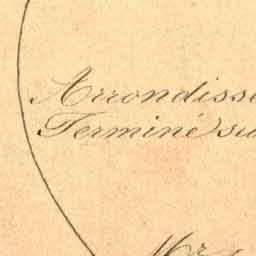 Arrondisse
Terminé su
Mr